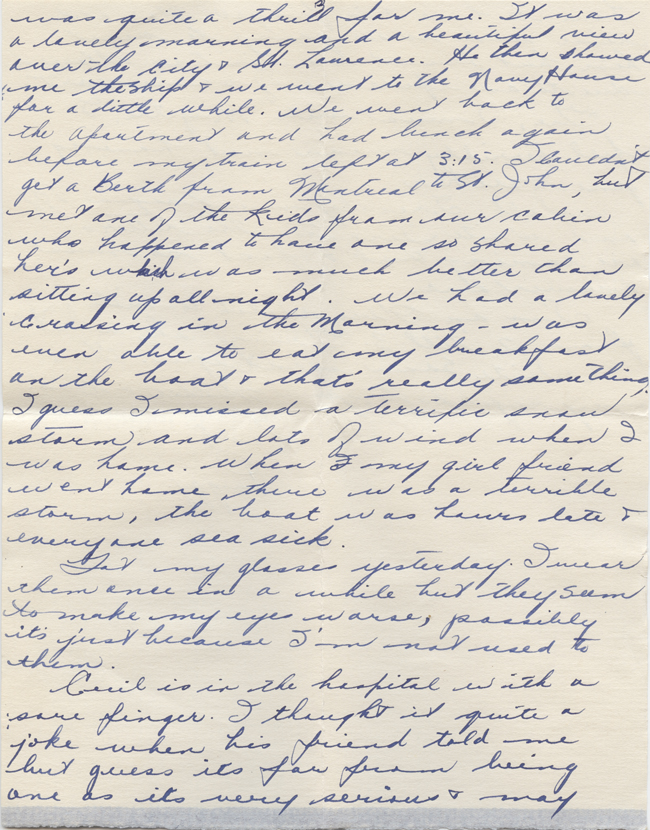 was quite a thrill for me. It was
a lovely morning and a beautiful view
over the city & St. Lawrence. He then showed
me the ship & we went to the Navy House
for a little while. We went back to
the apartment and had lunch again
before my train left at 3:15. I couldn't
get a Berth from Montreal to St. John, but
met one of the kids from our cabin
who happened to have one so shared
her's which was much better than
sitting up all night. We had a lovely
crossing in the Morning - was
even able to eat my breakfast
on the boat & that's really something.
I guess I missed a terrific snow
storm and lots of wind when I
was home. When my girl friend
went home there was a terrible
storm, the boat was hours late &
everyone sea sick.
Got my glasses yesterday. I wear
them once in a while but they seem
to make my eyes worse, possibly
it's just because I'm not used to
them.
Cecil is in the hospital with a
sore finger. I thought it quite a
joke when his friend told me
but guess its far from being
one as its very serious & may